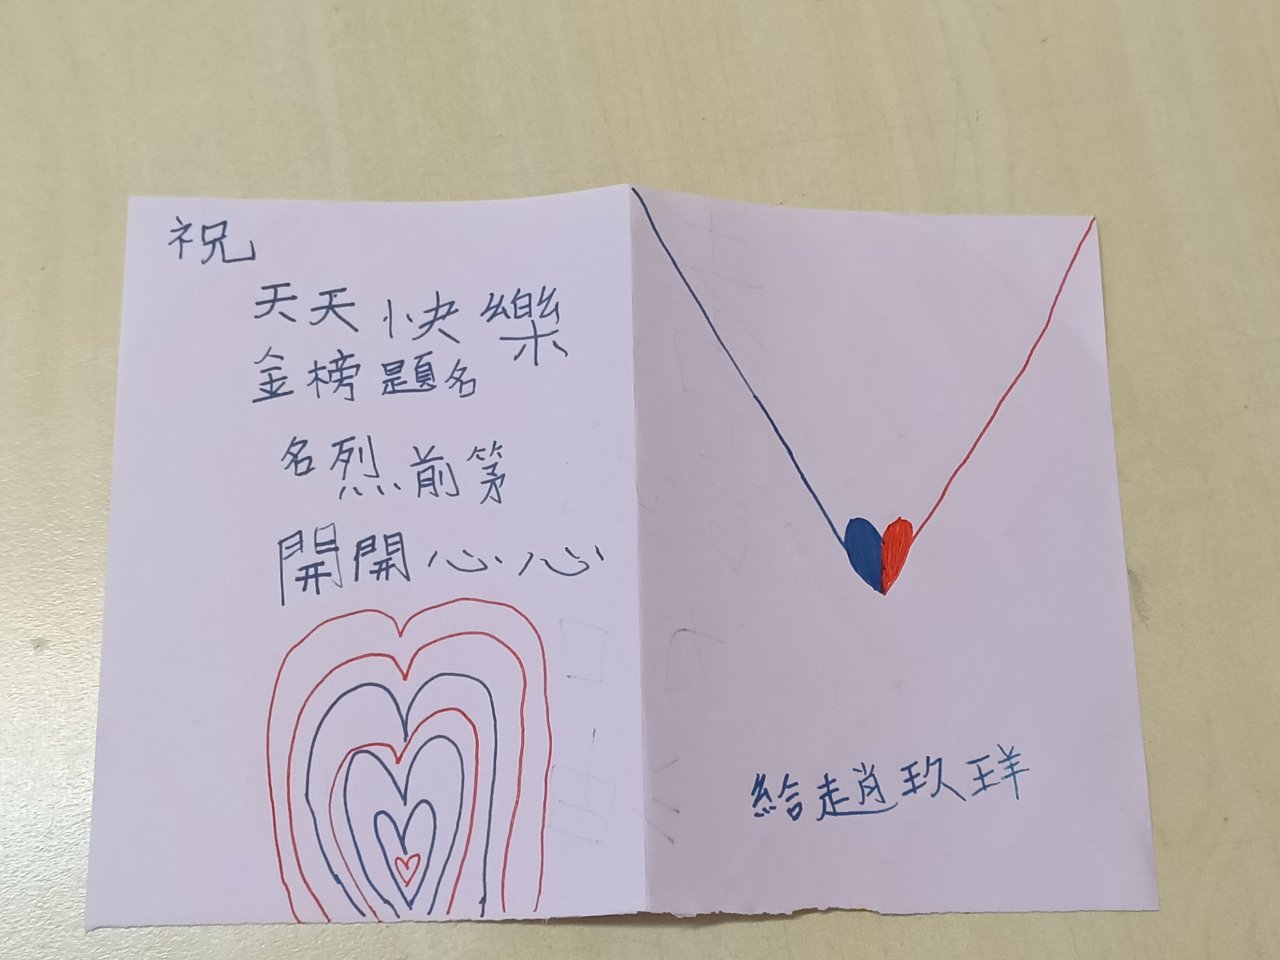 祝
天天快樂
金榜題名
名烈前茅
開開心心
給趙玖珜